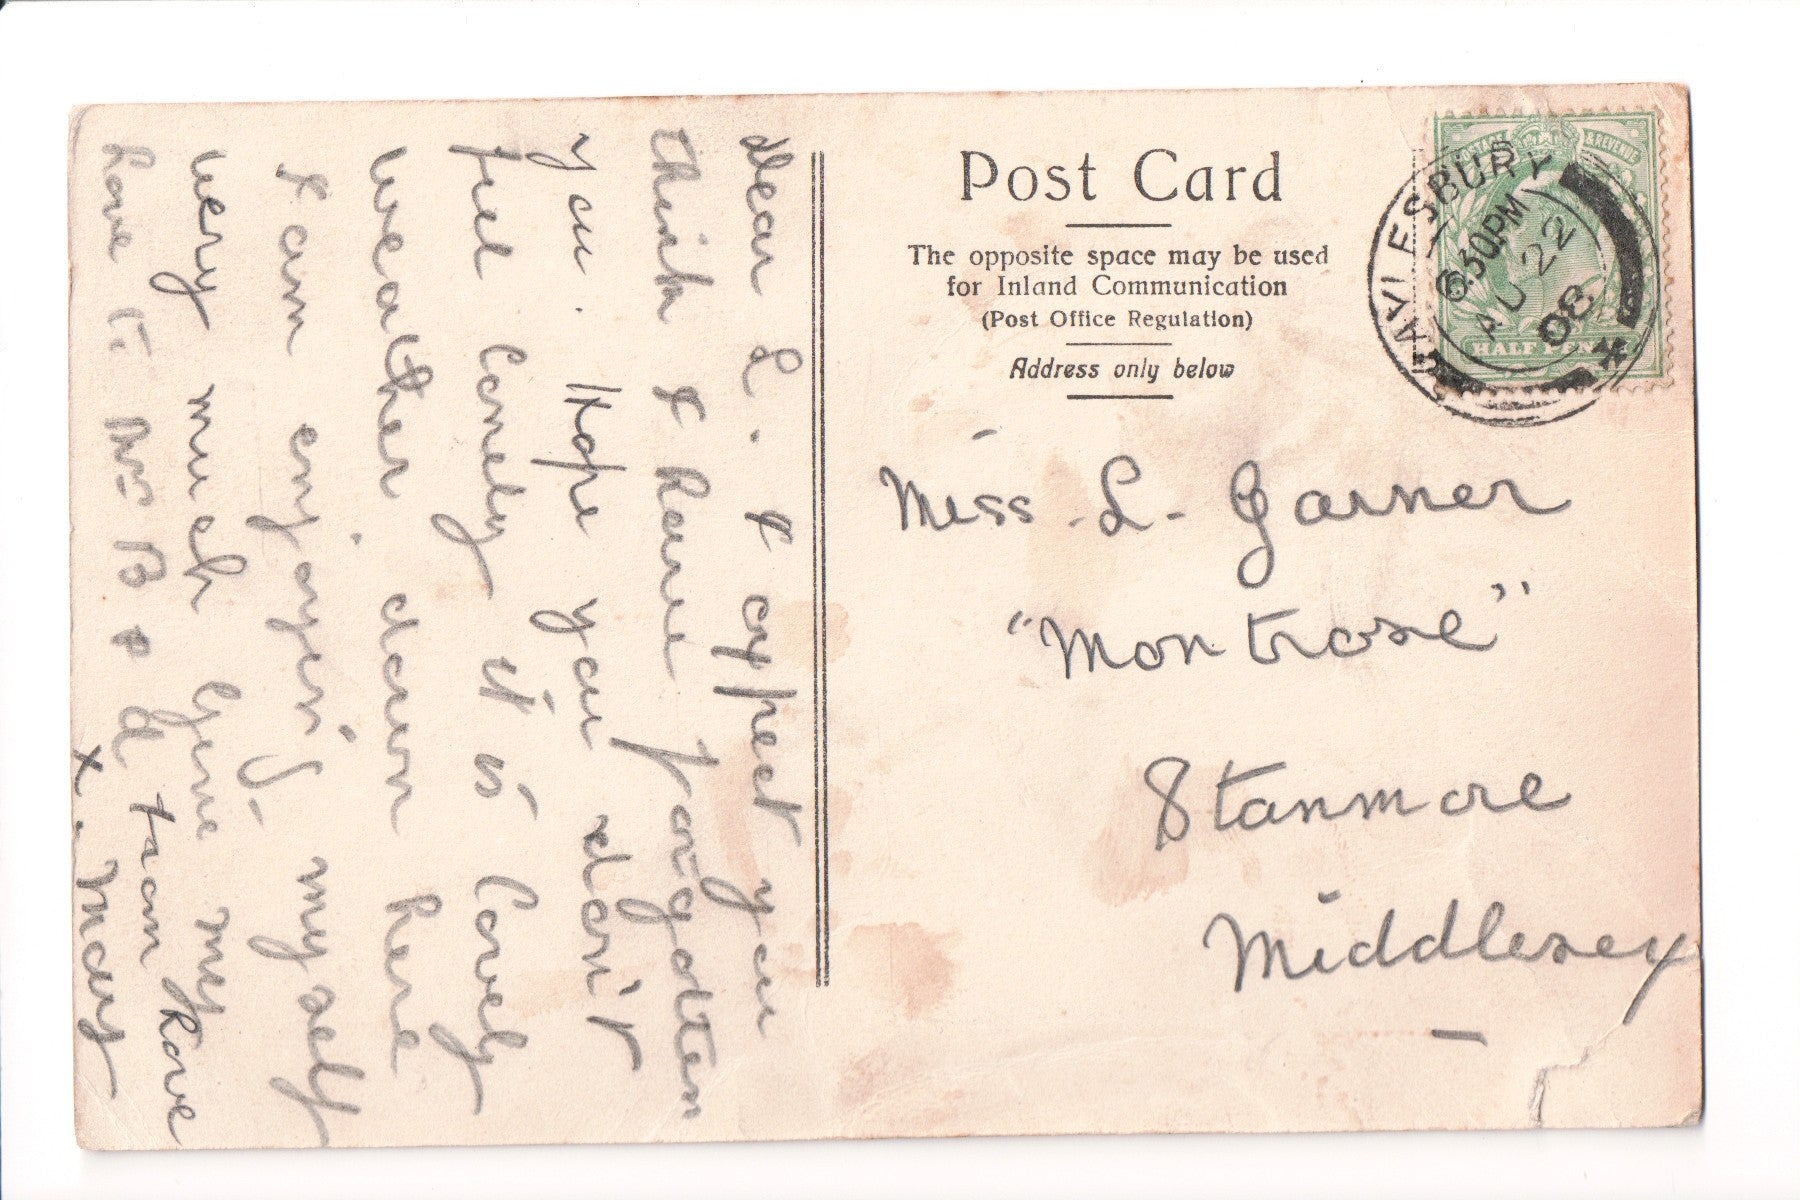 Post Card
The opposite space may be used
for Inland Communication
(Post Office Regulation)
Address only below
POSTAGE & REVENUE
HALF PENNY
AYLESBURY
6.30PM
AU 22
08
Miss. L. Garner
"Montrose"
Stanmore
Middlesex
Dear L. I expect you
think I have forgotten
you. Hope you don't
feel lonely it is lovely
weather down here
I am enjoying myself
very much. Give my
love to Mrs B & d from
x. May